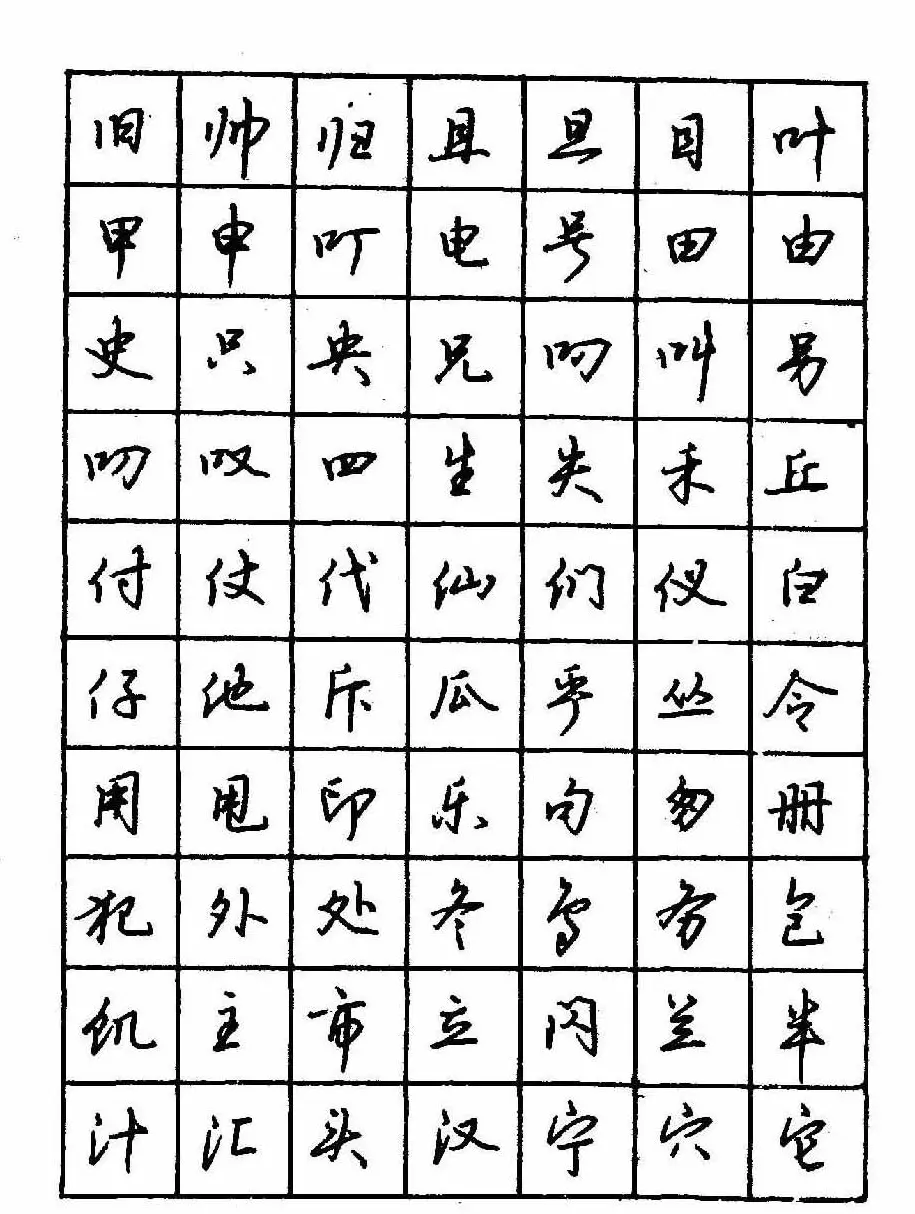 旧 帅 归 且 旦 目 叶
甲 申 叮 电 号 田 由
史 只 央 兄 叼 叫 另
叨 叹 四 生 失 禾 丘
付 仗 代 仙 们 仪 白
仔 他 斥 瓜 乎 丛 令
用 甩 印 乐 句 匆 册
犯 外 处 冬 鸟 务 包
饥 主 市 立 闪 兰 半
汁 汇 头 汉 宁 穴 它